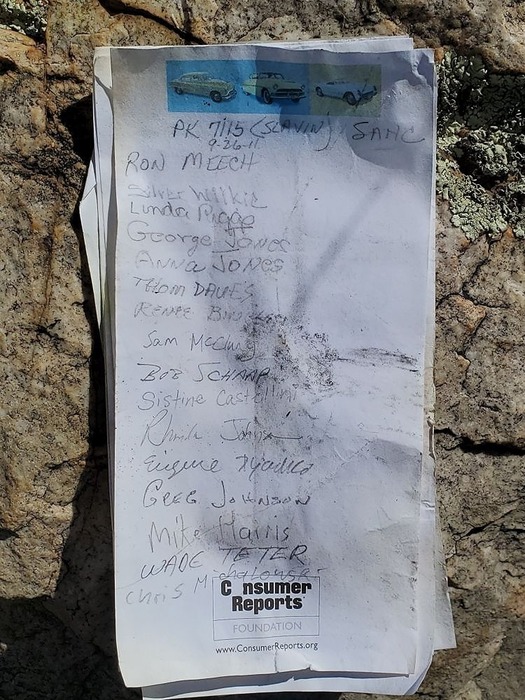 PK 7115 (SLAVIN) SAHC
9-26-11
RON MEECH
Silver Wilkie
Linda
George Jones
ANNA JONES
THOM DAVIES
RENEE
Sam McClung
BOB SCHAAP
Sistine Castellini
Johnson
Eugene
GREG JOHNSON
Mike Harris
WADE TETER
Chris
Consumer
Reports
FOUNDATION
www.ConsumerReports.org